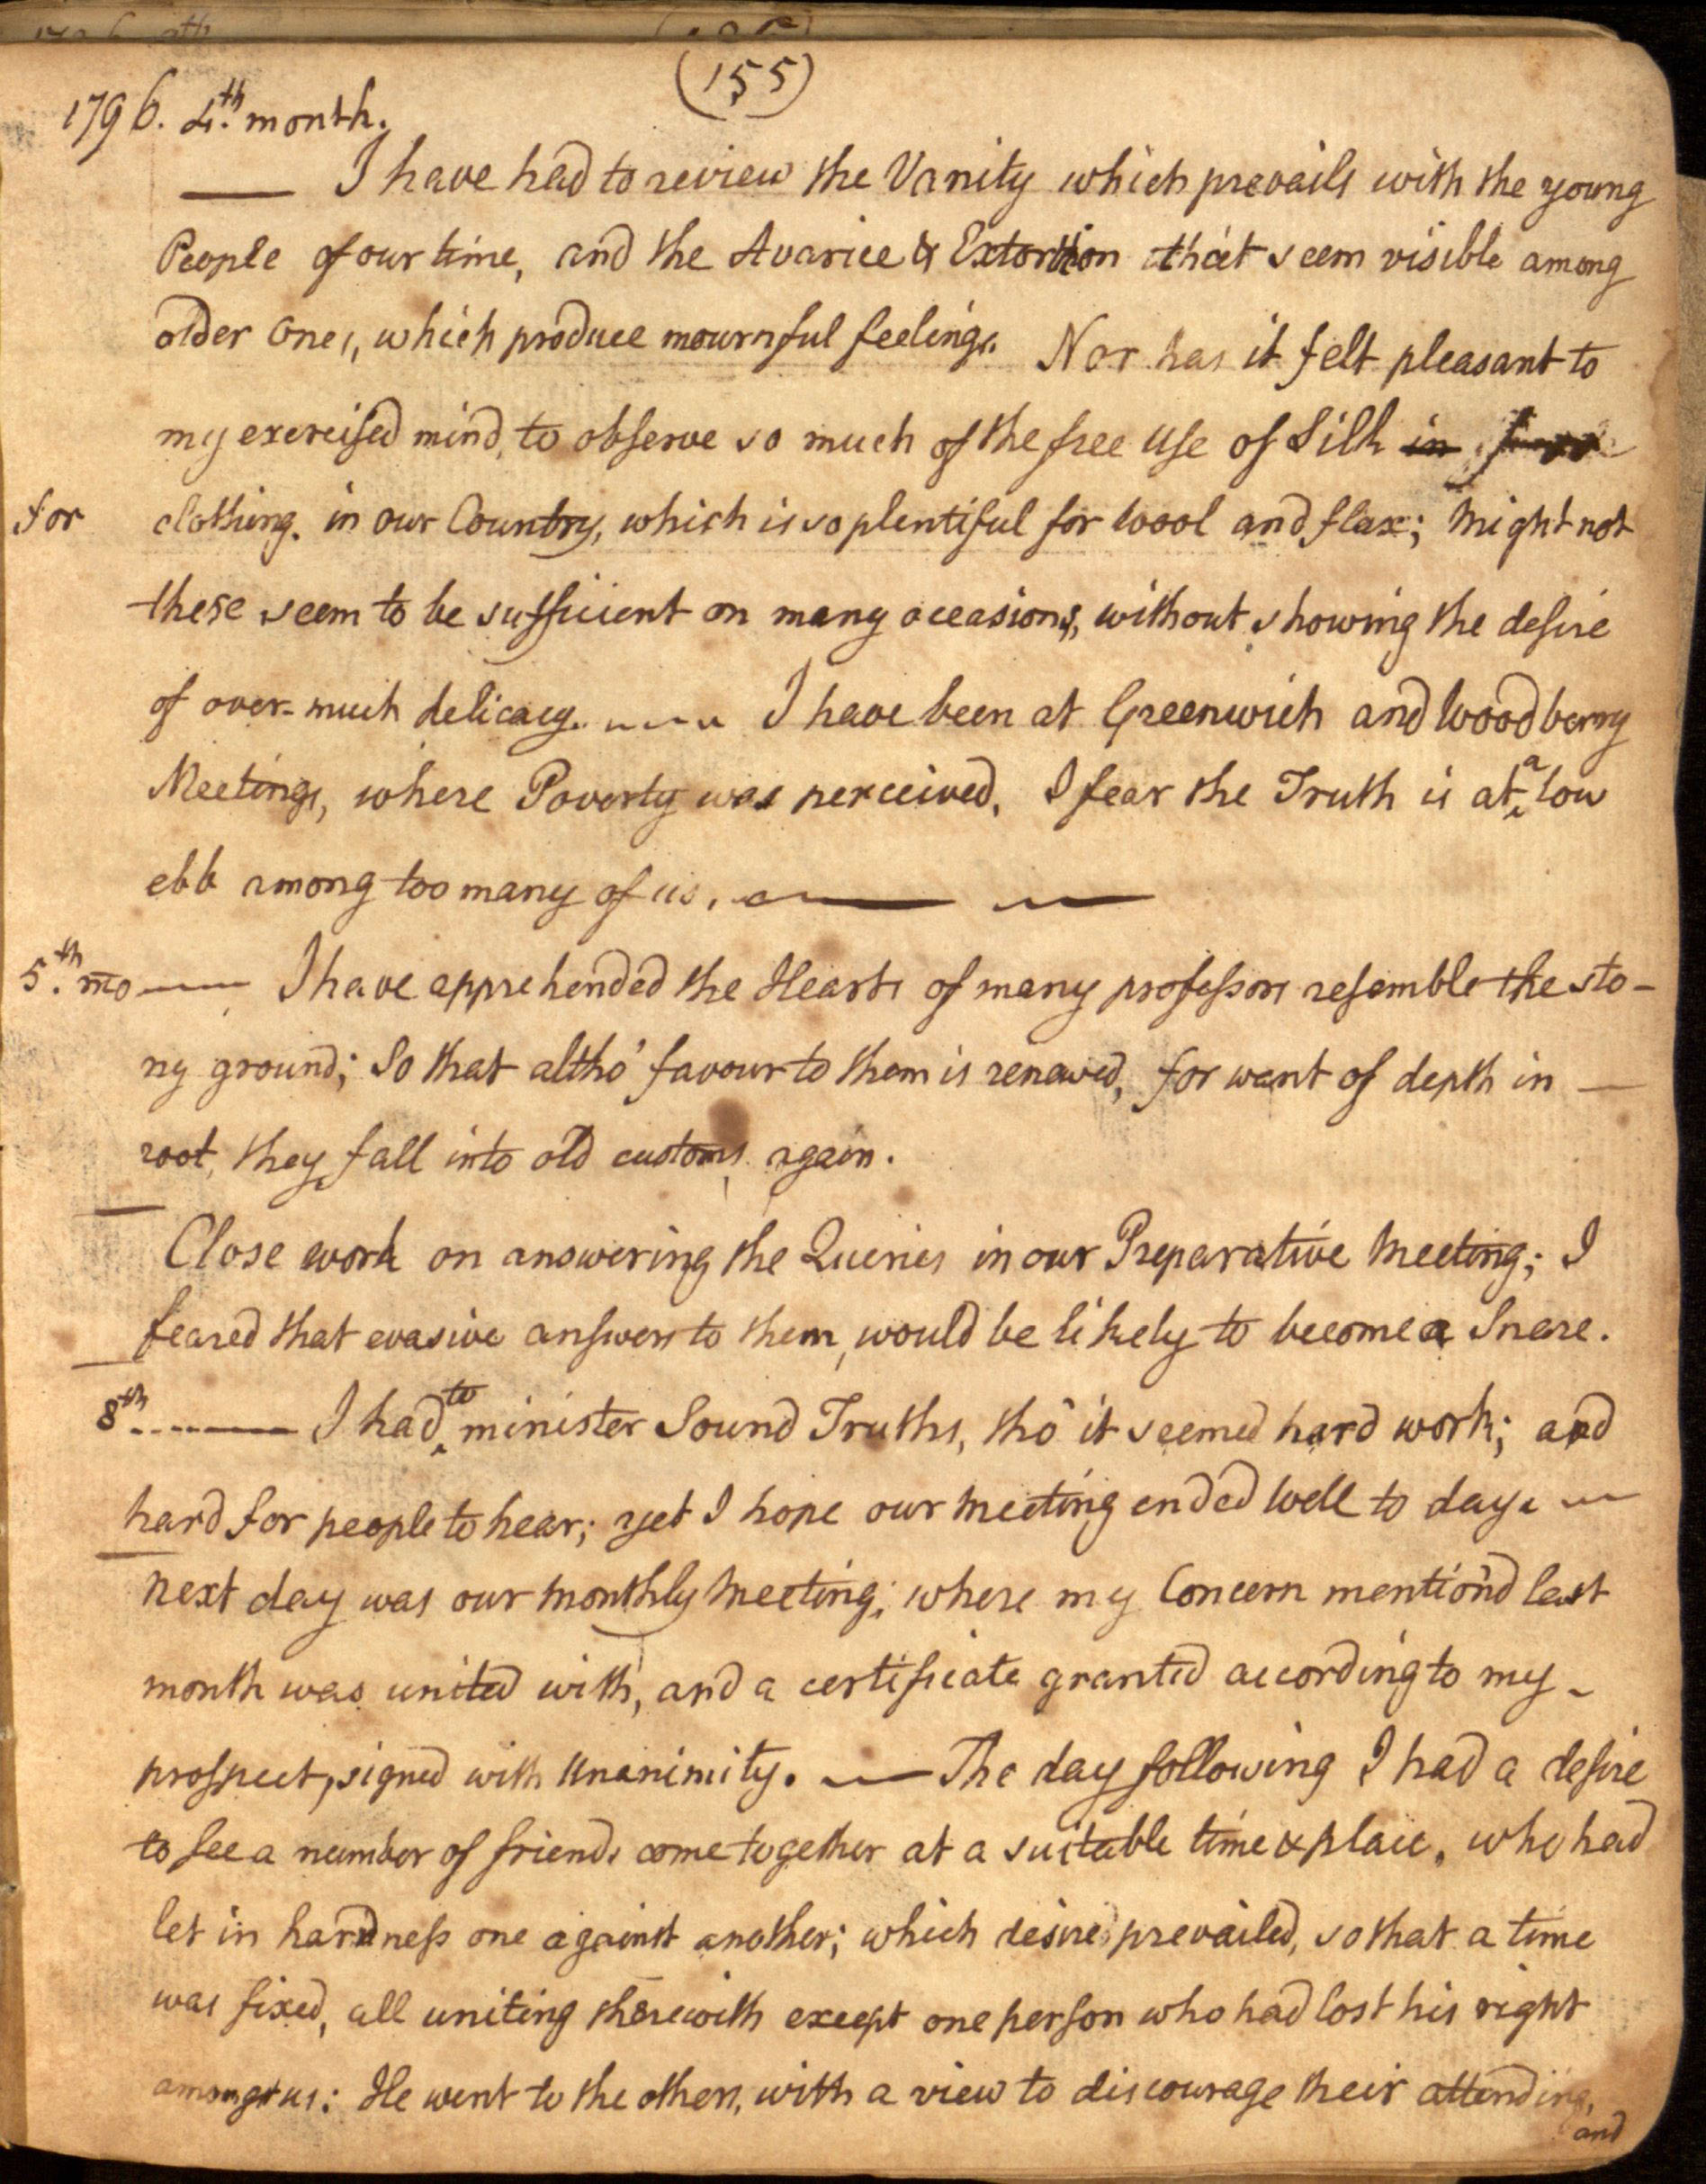 (155)
1796. 4.th month.
—— I have had to review the Vanity which prevails with the young
People of our time, and the Avarice & Extortion that seem visible among
older ones, which produce mournful feelings. Nor has it felt pleasant to
my exercised mind, to observe so much of the free use of Silk in
for clothing. in our Country, which is so plentiful for wool and flax; might not
these seem to be sufficient on many occasions, without showing the desire
of over-much delicacy. ---- I have been at Greenwich and Woodberry
Meetings, where Poverty was perceived. I fear the Truth is at a low
ebb among too many of us. —— ——
5.th mo —— I have apprehended the Hearts of many professors resemble the sto-
ny ground; So that altho' favour to them is renewed, for want of depth in —
root, they fall into old customs again.
Close work on answering the Queries in our Preparative Meeting; I
feared that evasive answers to them, would be likely to become a Snare.
8th ---—— I had to minister Sound Truths, tho' it seemed hard work; and
hard for people to hear; yet I hope our meeting ended well to day. —
next day was our monthly Meeting; where my Concern mention'd last
month was united with, and a certificate granted according to my -
prospect, signed with Unanimity. —— The day following I had a desire
to see a number of friends come together at a suitable time & place, who had
let in hardness one against another; which desire prevailed, so that a time
was fixed, all uniting therewith except one person who had lost his right
amongst us: He went to the others, with a view to discourage their attending,
and